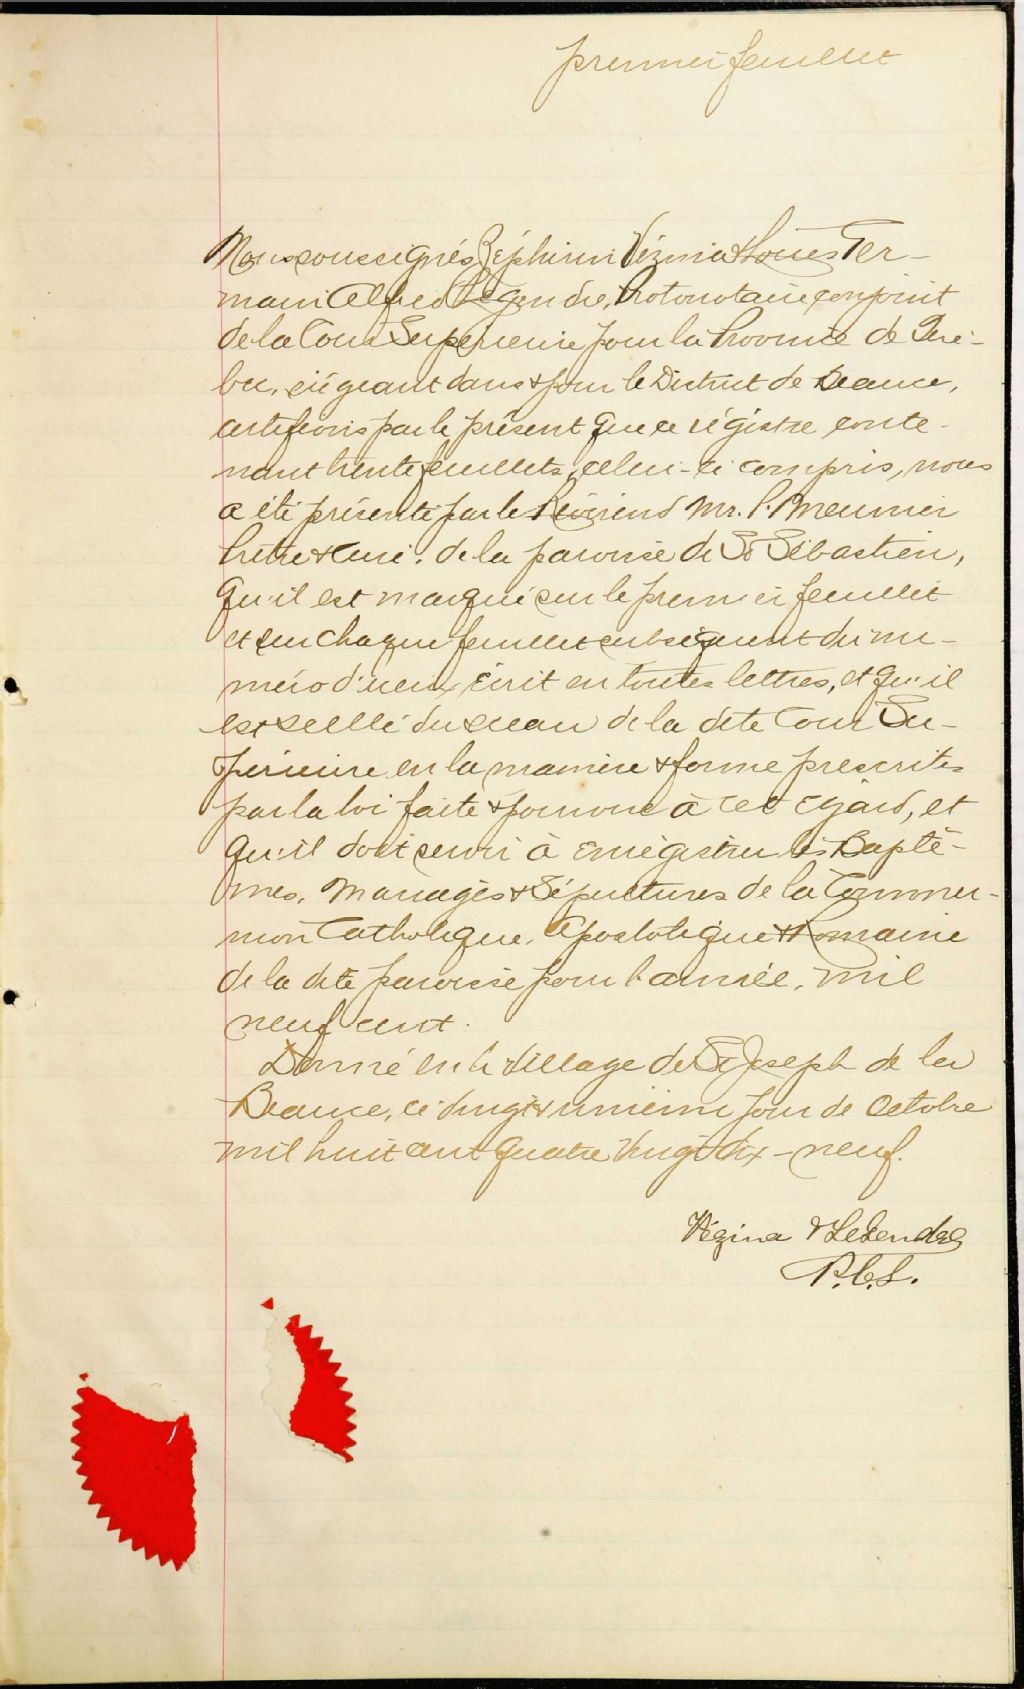 premier feuillet
Nous soussignés Zéphirin Vézina & Louis Fer-
mani Alfred Legendre, Protonotaire conjoint
de la Cour Supérieure pour la Province de Qué-
bec, siégeant dans & pour le District de Beauce,
certifions par le présent que ce régistre conte-
nant trente feuillets, celui-ci compris, nous
a été présenté par le Révérend Mr. P. Meunier
Prêtre & Curé. de la paroisse de St Sébastien,
qu'il est marqué sur le premier feuillet
et sur chaque feuillet subséquent du nu-
méro d'iceux, écrit en toutes lettres, et qu'il
est scellé du sceau de la dite Cour Su-
périeure en la manière & forme prescrites
par la loi faite & pourvue à cet égard, et
qu'il doit servir à enrégistrer les Baptê-
mes, Mariages & Sépultures de la Commu-
nion Catholique, Apostolique & Romaine
de la dite paroisse pour l'année, mil
neuf cent.
Donné en le Village de St Joseph de la
Beauce, ce vingt & unième jour de Octobre
mil huit cent quatre vingt dix-neuf.
Vézina & Legendre
P.C.S.